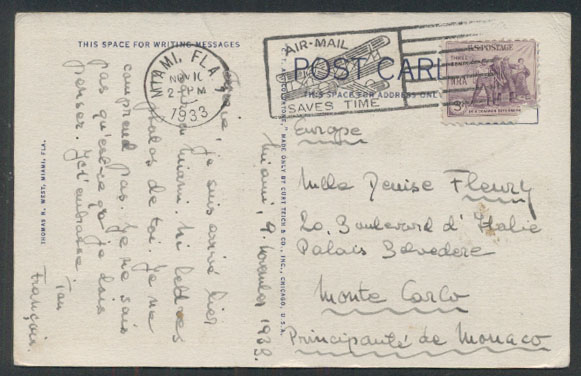 THIS SPACE FOR WRITING MESSAGES
MIAMI, FLA.
NOV 10
2 PM
1933
AIR-MAIL
SAVES TIME
POST CARD
THIS SPACE FOR ADDRESS ONLY
U.S. POSTAGE
THREE CENTS
NRA
3¢
IN A COMMON DETERMINATION
Europe
Mlle Denise Fleury
20, Boulevard d'Italie
Palais Belvedere
Monte Carlo
Principauté de Monaco
Miami, 9 Novembre 1933.
je suis arrivé hier
Miami. Ni lettres
photos de toi. Je ne
comprend pas. Je ne sais
pas qu'est-ce que je dois
penser. Je t'embrasse
Ton
Français.
MADE ONLY BY CURT TEICH & CO., INC., CHICAGO, U.S.A.
THOMAS N. WEST, MIAMI, FLA.